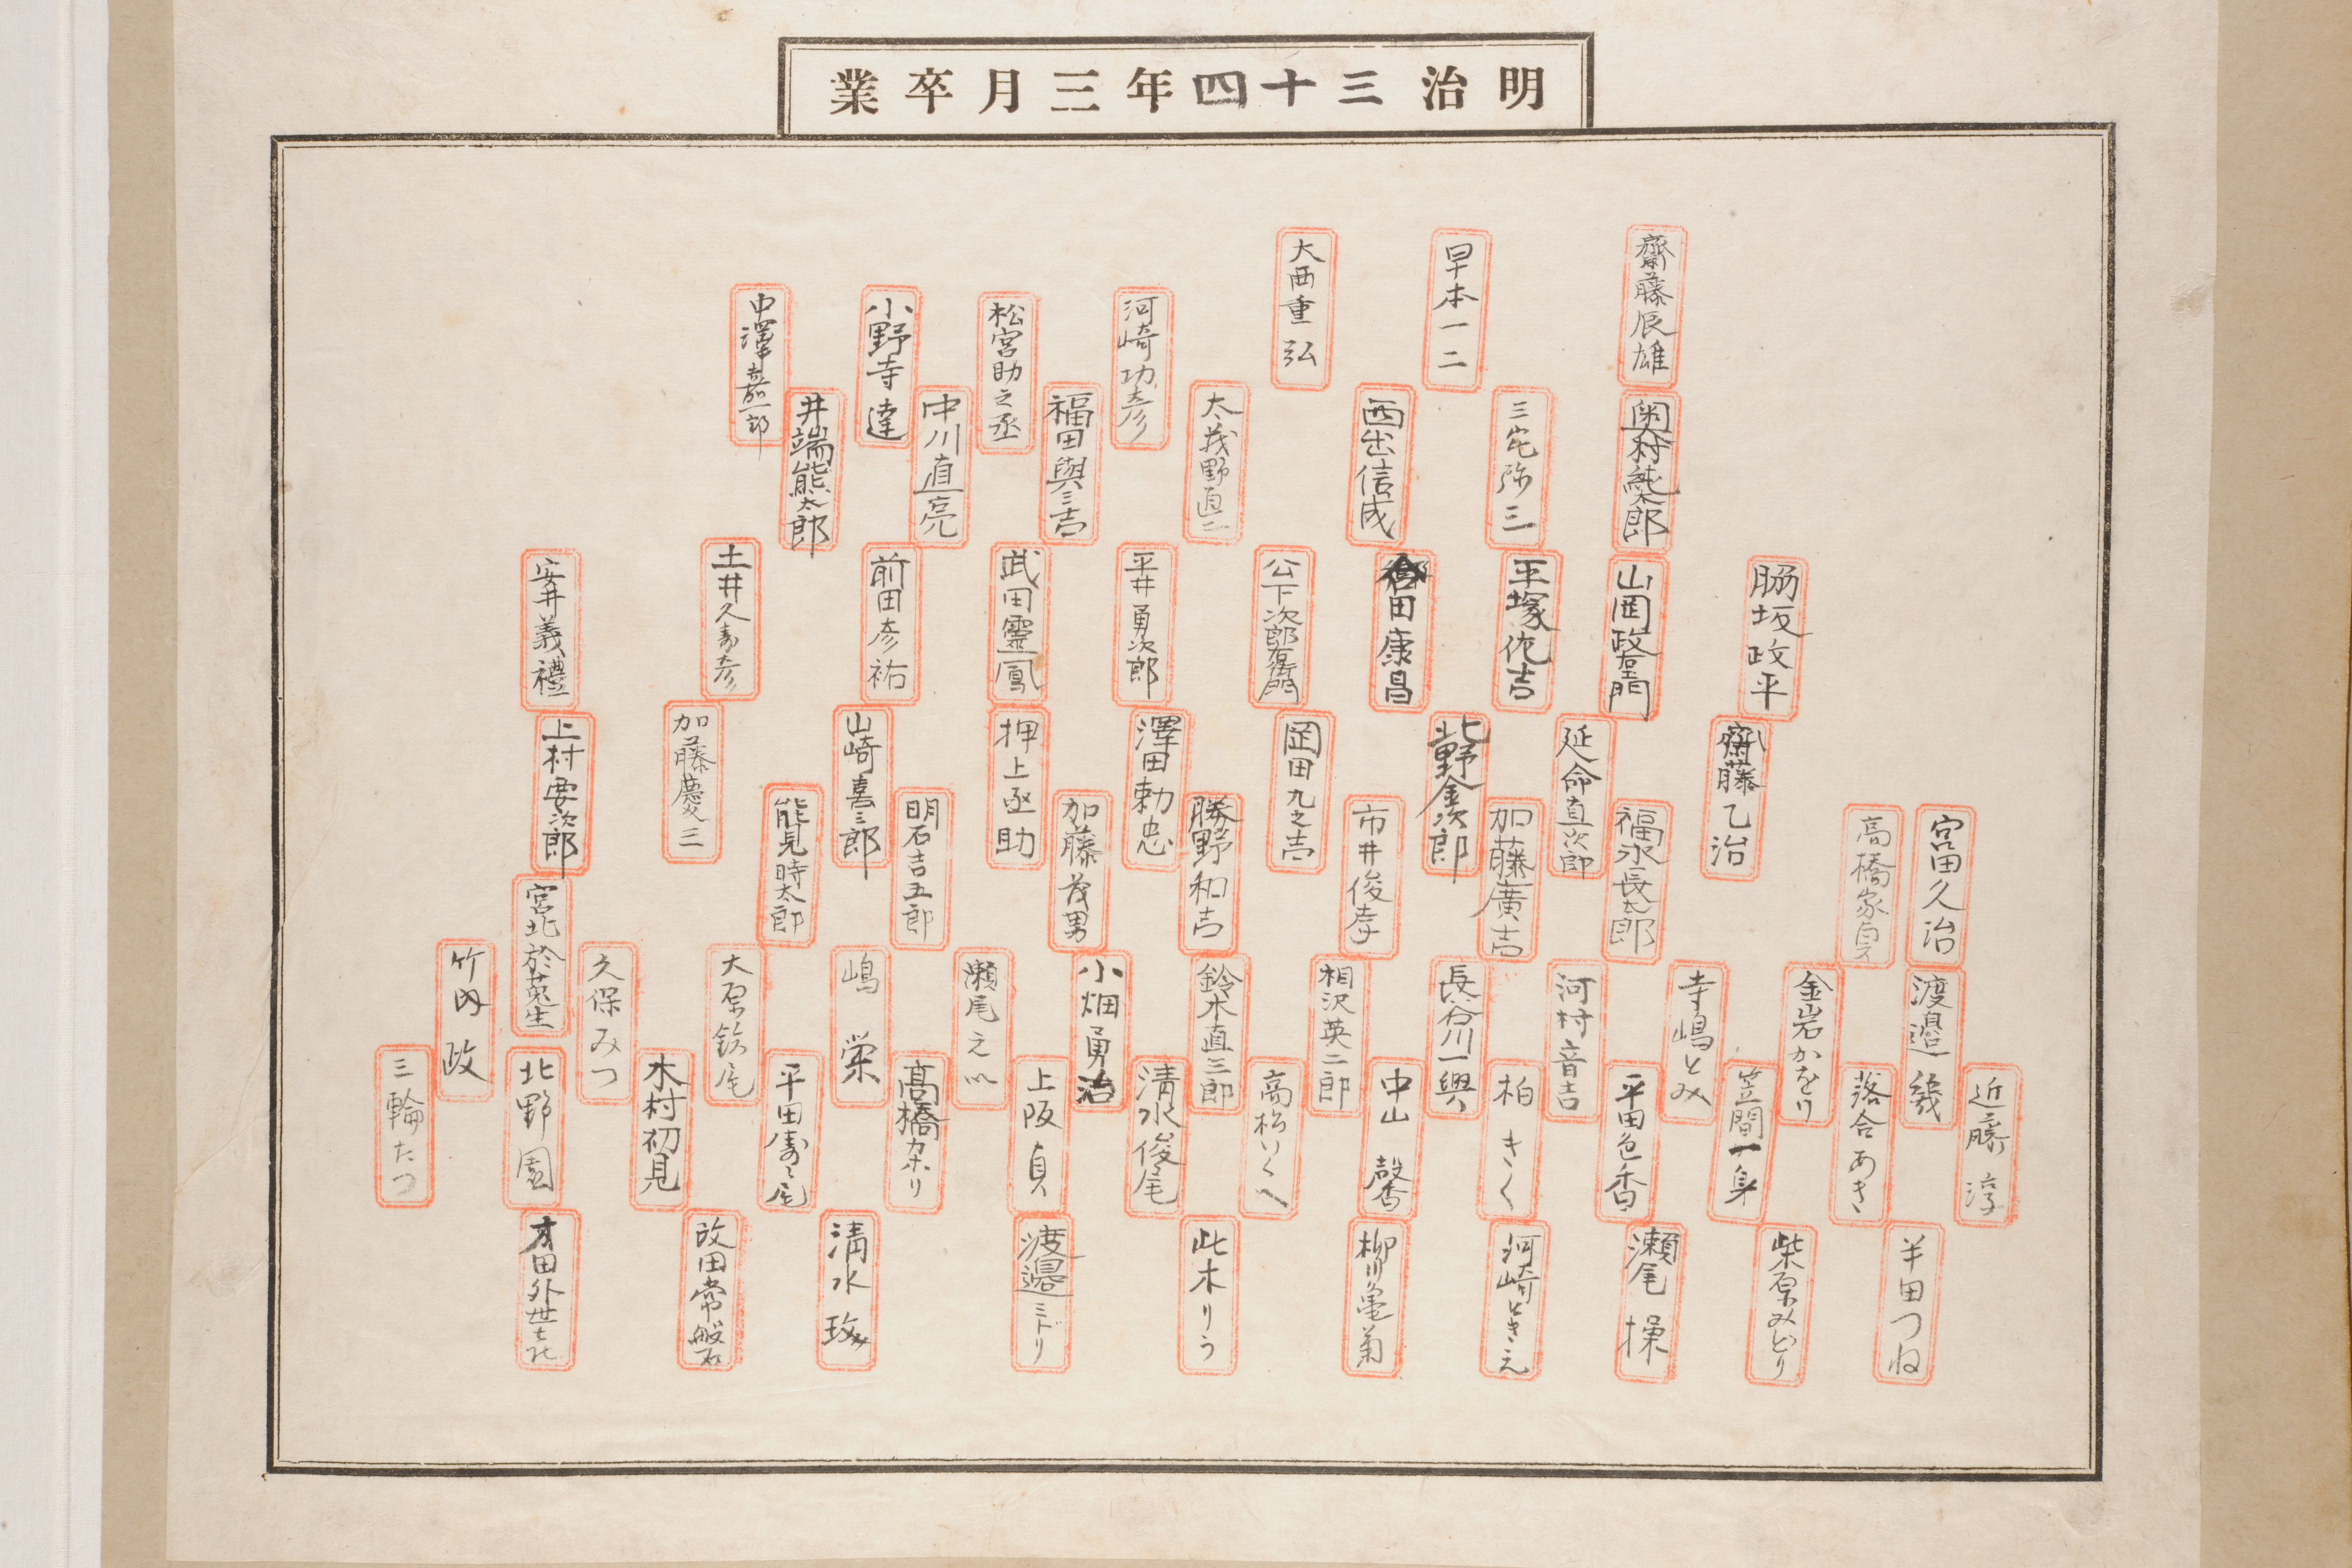 明治三十四年三月卒業
齋藤辰雄
早本一二
大西重弘
河崎功彦
松宮助之丞
小野寺達
中澤嘉一郎
奥村純太郎
三宅弥三
西出信成
太義野直二
福田與三吉
中川直亮
井端熊太郎
脇坂政平
山岡政右エ門
平塚佗吉
合田康昌
公下次郎右衛門
平井勇次郎
武田靈鳳
前田彦祐
土井久寿彦
安井義禮
齋藤乙治
延命直次郎
北野金次郎
岡田九之吉
澤田勅忠
押上亟助
山崎喜三郎
加藤慶三
上村要次郎
宮田久治
高橋家貞
福永長太郎
加藤廣吉
市井俊孝
勝野和吉
加藤茂男
明石吉五郎
能見時太郎
宮北於菟生
渡邉幾
金岩かをり
寺嶋とみ
河村音吉
長谷川一興
相沢英二郎
鈴木直三郎
小畑勇治
瀬尾之
嶋栄
大原鈊尾
久保みつ
竹内政
近藤淳
落合あき
笠間一身
平田色香
柏きく
中山馨
高松いくへ
清水俊尾
上阪貞
髙橋カホリ
平田寿々尾
木村初見
北野園
三輪たつ
半田つね
柴原みどり
瀬尾操
河崎ときえ
柳川亀菊
此木りう
渡邉ミドリ
清水玫
改田常磐
才田外世七